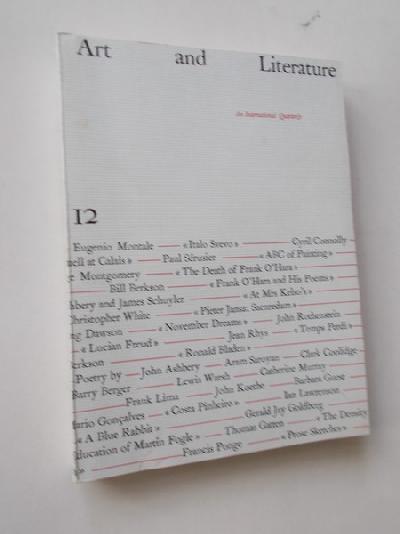 Art and Literature
An International Quarterly
12
Eugenio Montale — «Italo Svevo» — Cyril Connolly —
nell at Calais» — Paul Sérusier — «ABC of Painting» —
Montgomery — «The Death of Frank O'Hara»
Bill Berkson — «Frank O'Hara and His Poems» —
hbery and James Schuyler — «At Mrs Kelso's»
Christopher White — «Pieter Jansz. Saenredam» —
Dawson — «November Dreams» — John Rothenstein
— «Lucian Freud» — Jean Rhys — «Temps Perdi» —
erkson — «Ronald Bladen»
Poetry by — John Ashbery — Aram Saroyan — Clark Coolidge
Barry Berger — Lewis Warsh — Catherine Murray
Frank Lima — John Koethe — Barbara Guest
Mario Gonçalves — «Costa Pinheiro» — Ian
— «A Blue Rabbit» — Gerald Jay Goldberg
ducation of Martin Fogle» — Thomas — «The Density
— Francis Ponge — «Prose Sketches»